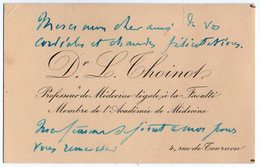 Merci mon cher ami de vos
cordiales et chaudes félicitations.
Dr. L. Thoinot
Professeur de Médecine légale à la Faculté
Membre de l'Académie de Médecine
se joint à moi pour
vous remercier
4, rue de Tournon